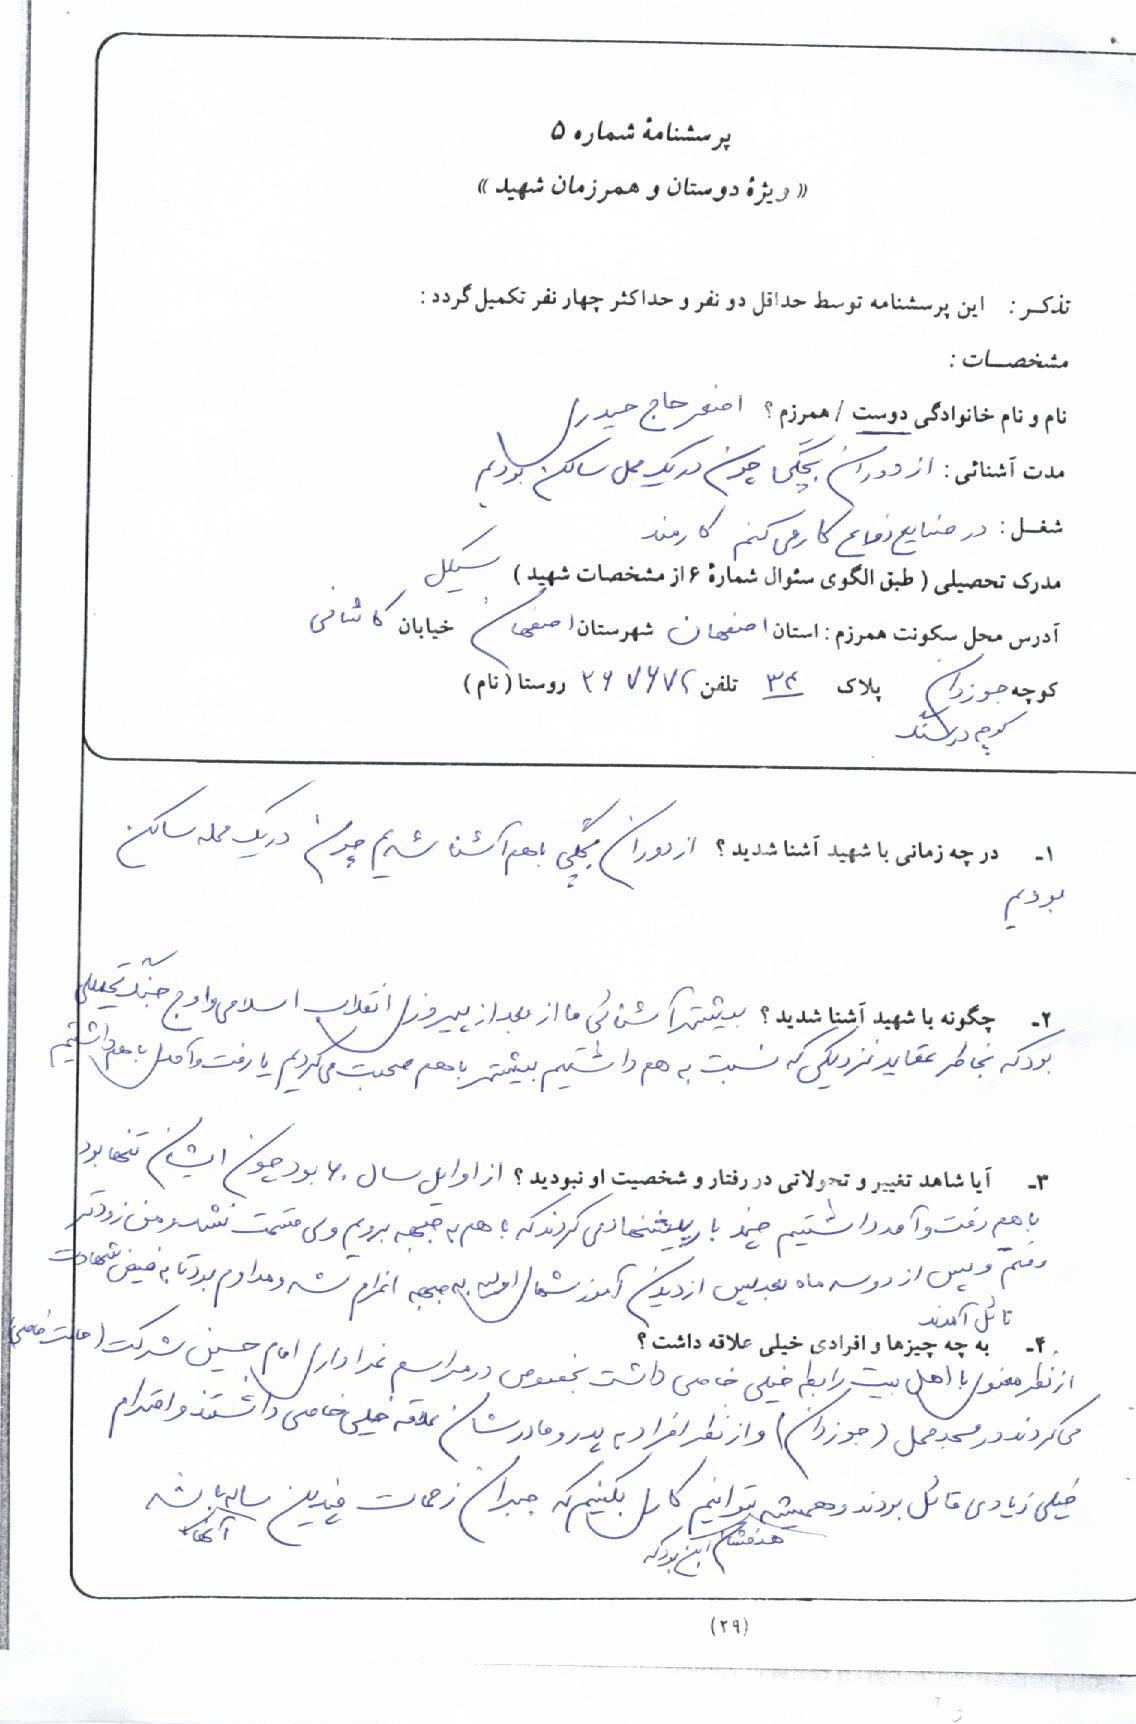 پرسشنامهٔ شماره ۵
« ویژهٔ دوستان و همرزمان شهید »
تذکـر : این پرسشنامه توسط حداقل دو نفر و حداکثر چهار نفر تکمیل گردد :
مشخصـات :
نام و نام خانوادگی دوست / همرزم ؟ اصغر حاج حیدری
مدت آشنائی : از دوران بچگی چون در یک محل ساکن بودیم
شغـل : در صنایع دفاع کار می کنم کارمند
مدرک تحصیلی ( طبق الگوی سئوال شمارهٔ ۶ از مشخصات شهید ) سیکل
آدرس محل سکونت همرزم : استان اصفهان شهرستان اصفهان خیابان کاشانی
کوچه جوزدان پلاک ۳۴ تلفن ۳۶۷۶۷۲ روستا ( نام )
کوچه
۱ـ در چه زمانی با شهید آشنا شدید ؟ از دوران بچگی باهم آشنا شدیم چون در یک محله ساکن
بودیم
۲ـ چگونه با شهید آشنا شدید ؟ بیشتر آشنائی ما از بعد از پیروزی انقلاب اسلامی و اوج جنگ تحمیلی
بود که بخاطر عقاید نزدیکی که نسبت به هم داشتیم بیشتر باهم صحبت می کردیم یا رفت و آمدی باهم داشتیم
۳ـ آیا شاهد تغییر و تحولاتی در رفتار و شخصیت او نبودید ؟ از اوایل سال ۶۰ بود چون ایشان تنها بود
باهم رفت و آمد داشتیم چند بار پیشنهاد می کردند که باهم به جبهه برویم ولی قسمت نشد و من زودتر
رفتم و پس از دو سه ماه بعد پس از دیدن آموزشهای اولیه به جبهه اعزام شد و مداوم بود تا به فیض شهادت
نائل آمدند
۴ـ به چه چیزها و افرادی خیلی علاقه داشت ؟
از نظر معنوی با اهل بیت رابطه خیلی خاصی داشت بخصوص در مراسم عزاداری امام حسین شرکت (حالت خاصی)
می کردند در مسجد محل (جوزدان) و از نظر افراد به پدر و مادرشان علاقه خیلی خاصی داشتند و احترام
خیلی زیادی قائل بودند و همیشه هدفشان این بود که بتوانیم کاری بکنیم که جبران زحمات چندین ساله آنها باشد
(۲۹)